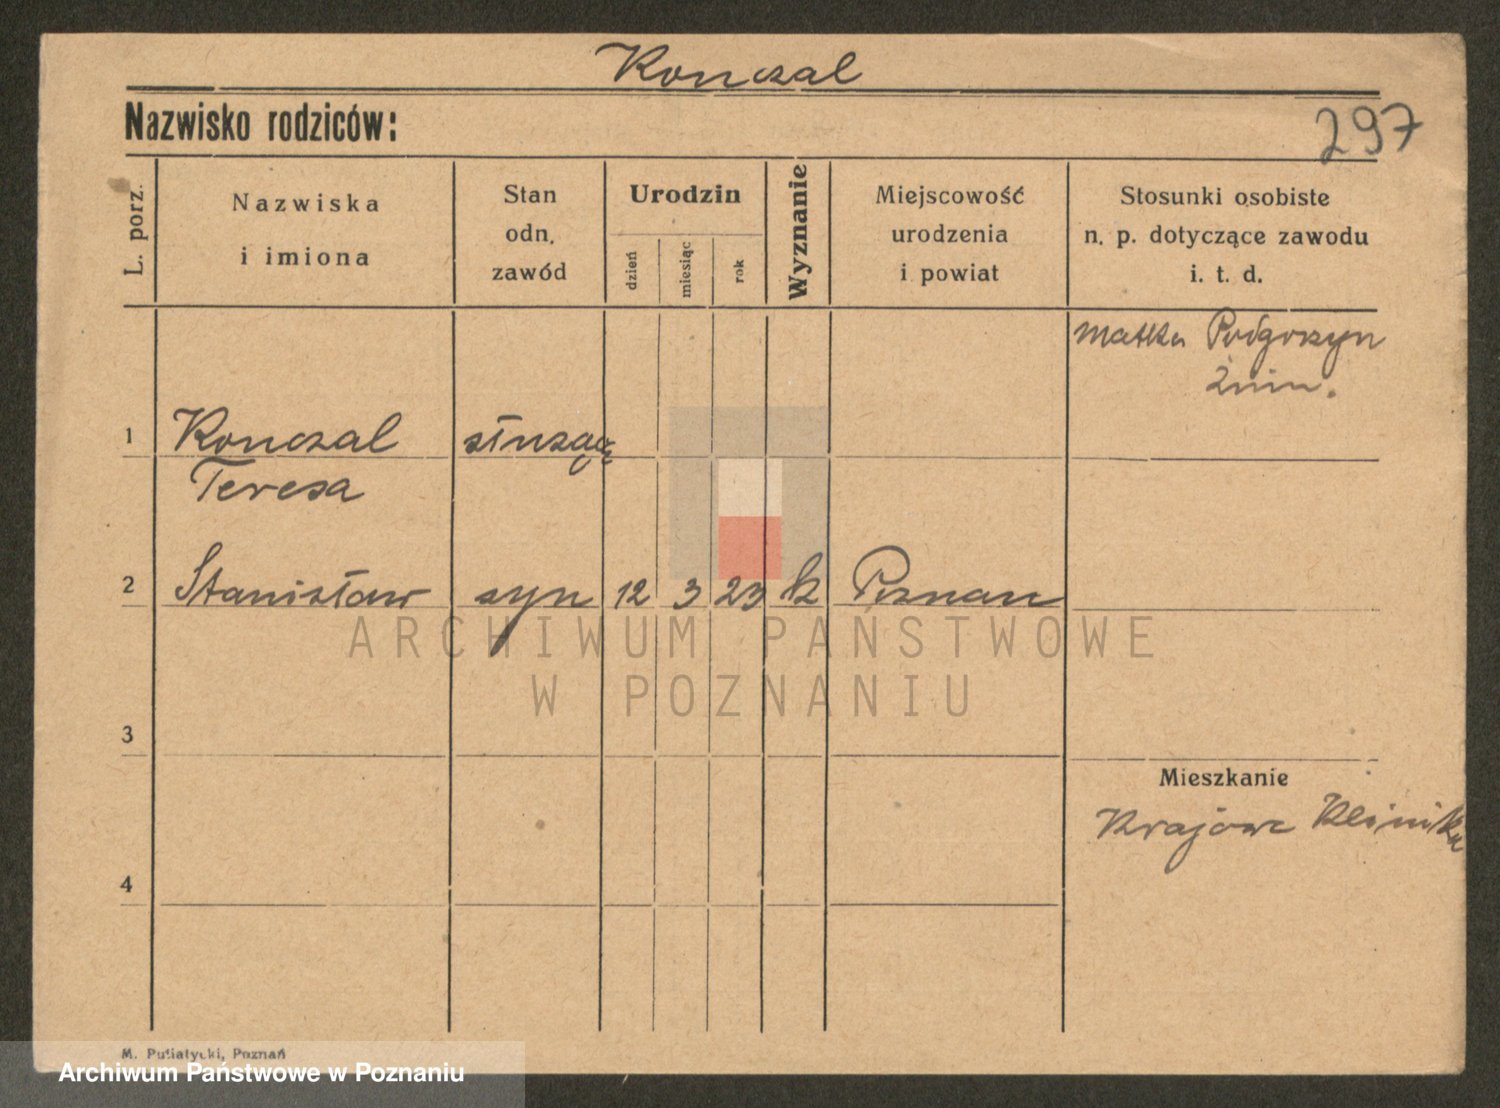 Konczal
Nazwisko rodziców:
297
L. porz.
Nazwiska
i imiona
Stan
odn.
zawód
Urodzin
dzień
miesiąc
rok
Wyznanie
Miejscowość
urodzenia
i powiat
Stosunki osobiste
n. p. dotyczące zawodu
i. t. d.
matka Podgorzyn
Żnin.
1 Konczal służącą
Teresa
2 Stanisław syn 12 3 23 k Poznan
ARCHIWUM PAŃSTWOWE
W POZNANIU
3
Mieszkanie
Krajowa Klinika
4
M. Putiatycki, Poznań
Archiwum Państwowe w Poznaniu